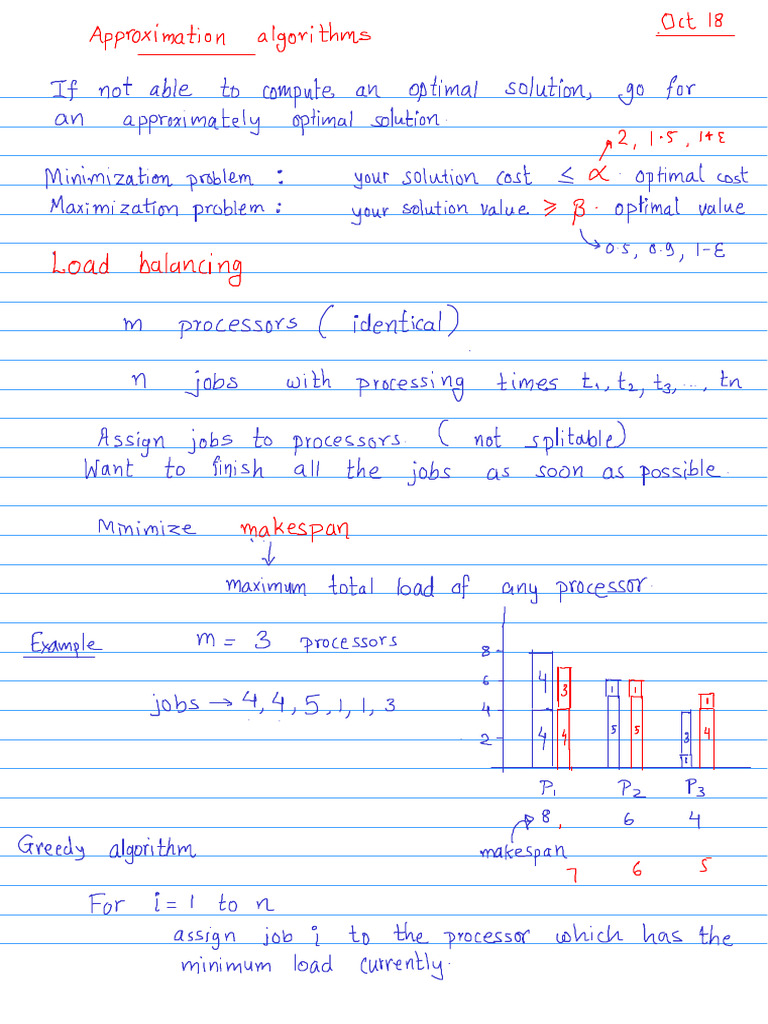 Oct 18
Approximation algorithms
If not able to compute an optimal solution, go for
an approximately optimal solution.
2, 1.5, 1+ε
Minimization problem : your solution cost ≤ α · optimal cost
Maximization problem : your solution value ≥ β · optimal value
0.5, 0.9, 1-ε
Load balancing
m processors ( identical)
n jobs with processing times t₁, t₂, t₃, ..., tn
Assign jobs to processors. ( not splitable)
Want to finish all the jobs as soon as possible.
Minimize makespan
maximum total load of any processor.
Example m = 3 processors
jobs → 4, 4, 5, 1, 1, 3
8
6
4
2
4 3 1 1 1
4 4 5 5 3 1 4
P₁ P₂ P₃
8, 6 4
makespan
7 6 5
Greedy algorithm
For i = 1 to n
assign job i to the processor which has the
minimum load currently.